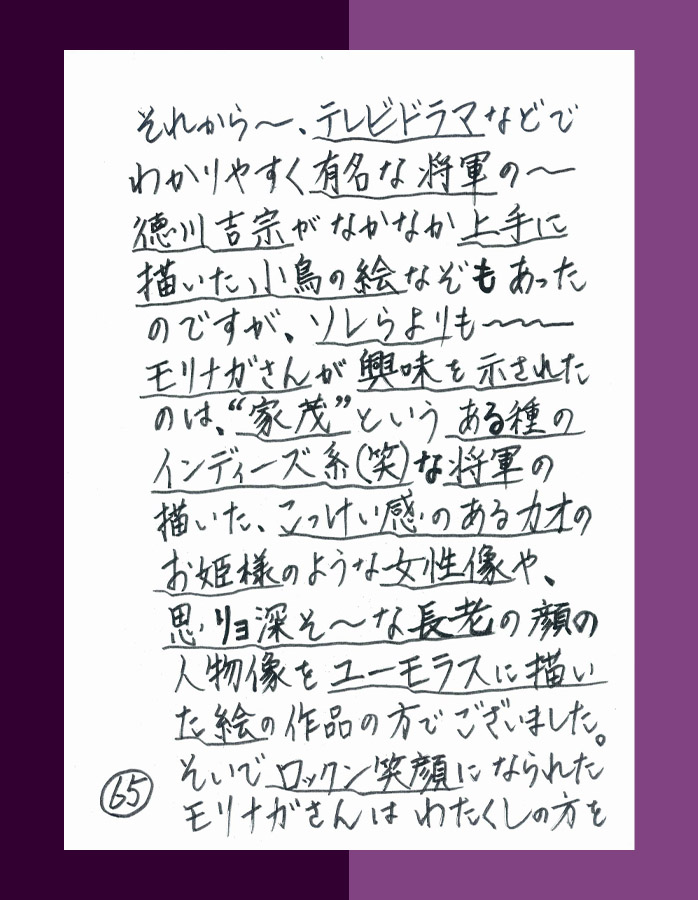 それから〜、テレビドラマなどで
わかりやすく有名な将軍の〜
徳川吉宗がなかなか上手に
描いた、小鳥の絵なぞもあった
のですが、ソレらよりも〜〜〜
モリナガさんが興味を示された
のは、“家茂”というある種の
インディーズ系(笑)な将軍の
描いた、こっけい感のあるカオの
お姫様のような女性像や、
思リョ深そ〜な長老の顔の
人物像をユーモラスに描い
た絵の作品の方でございました。
そいでロックン笑顔になられた
モリナガさんはわたくしの方を
65